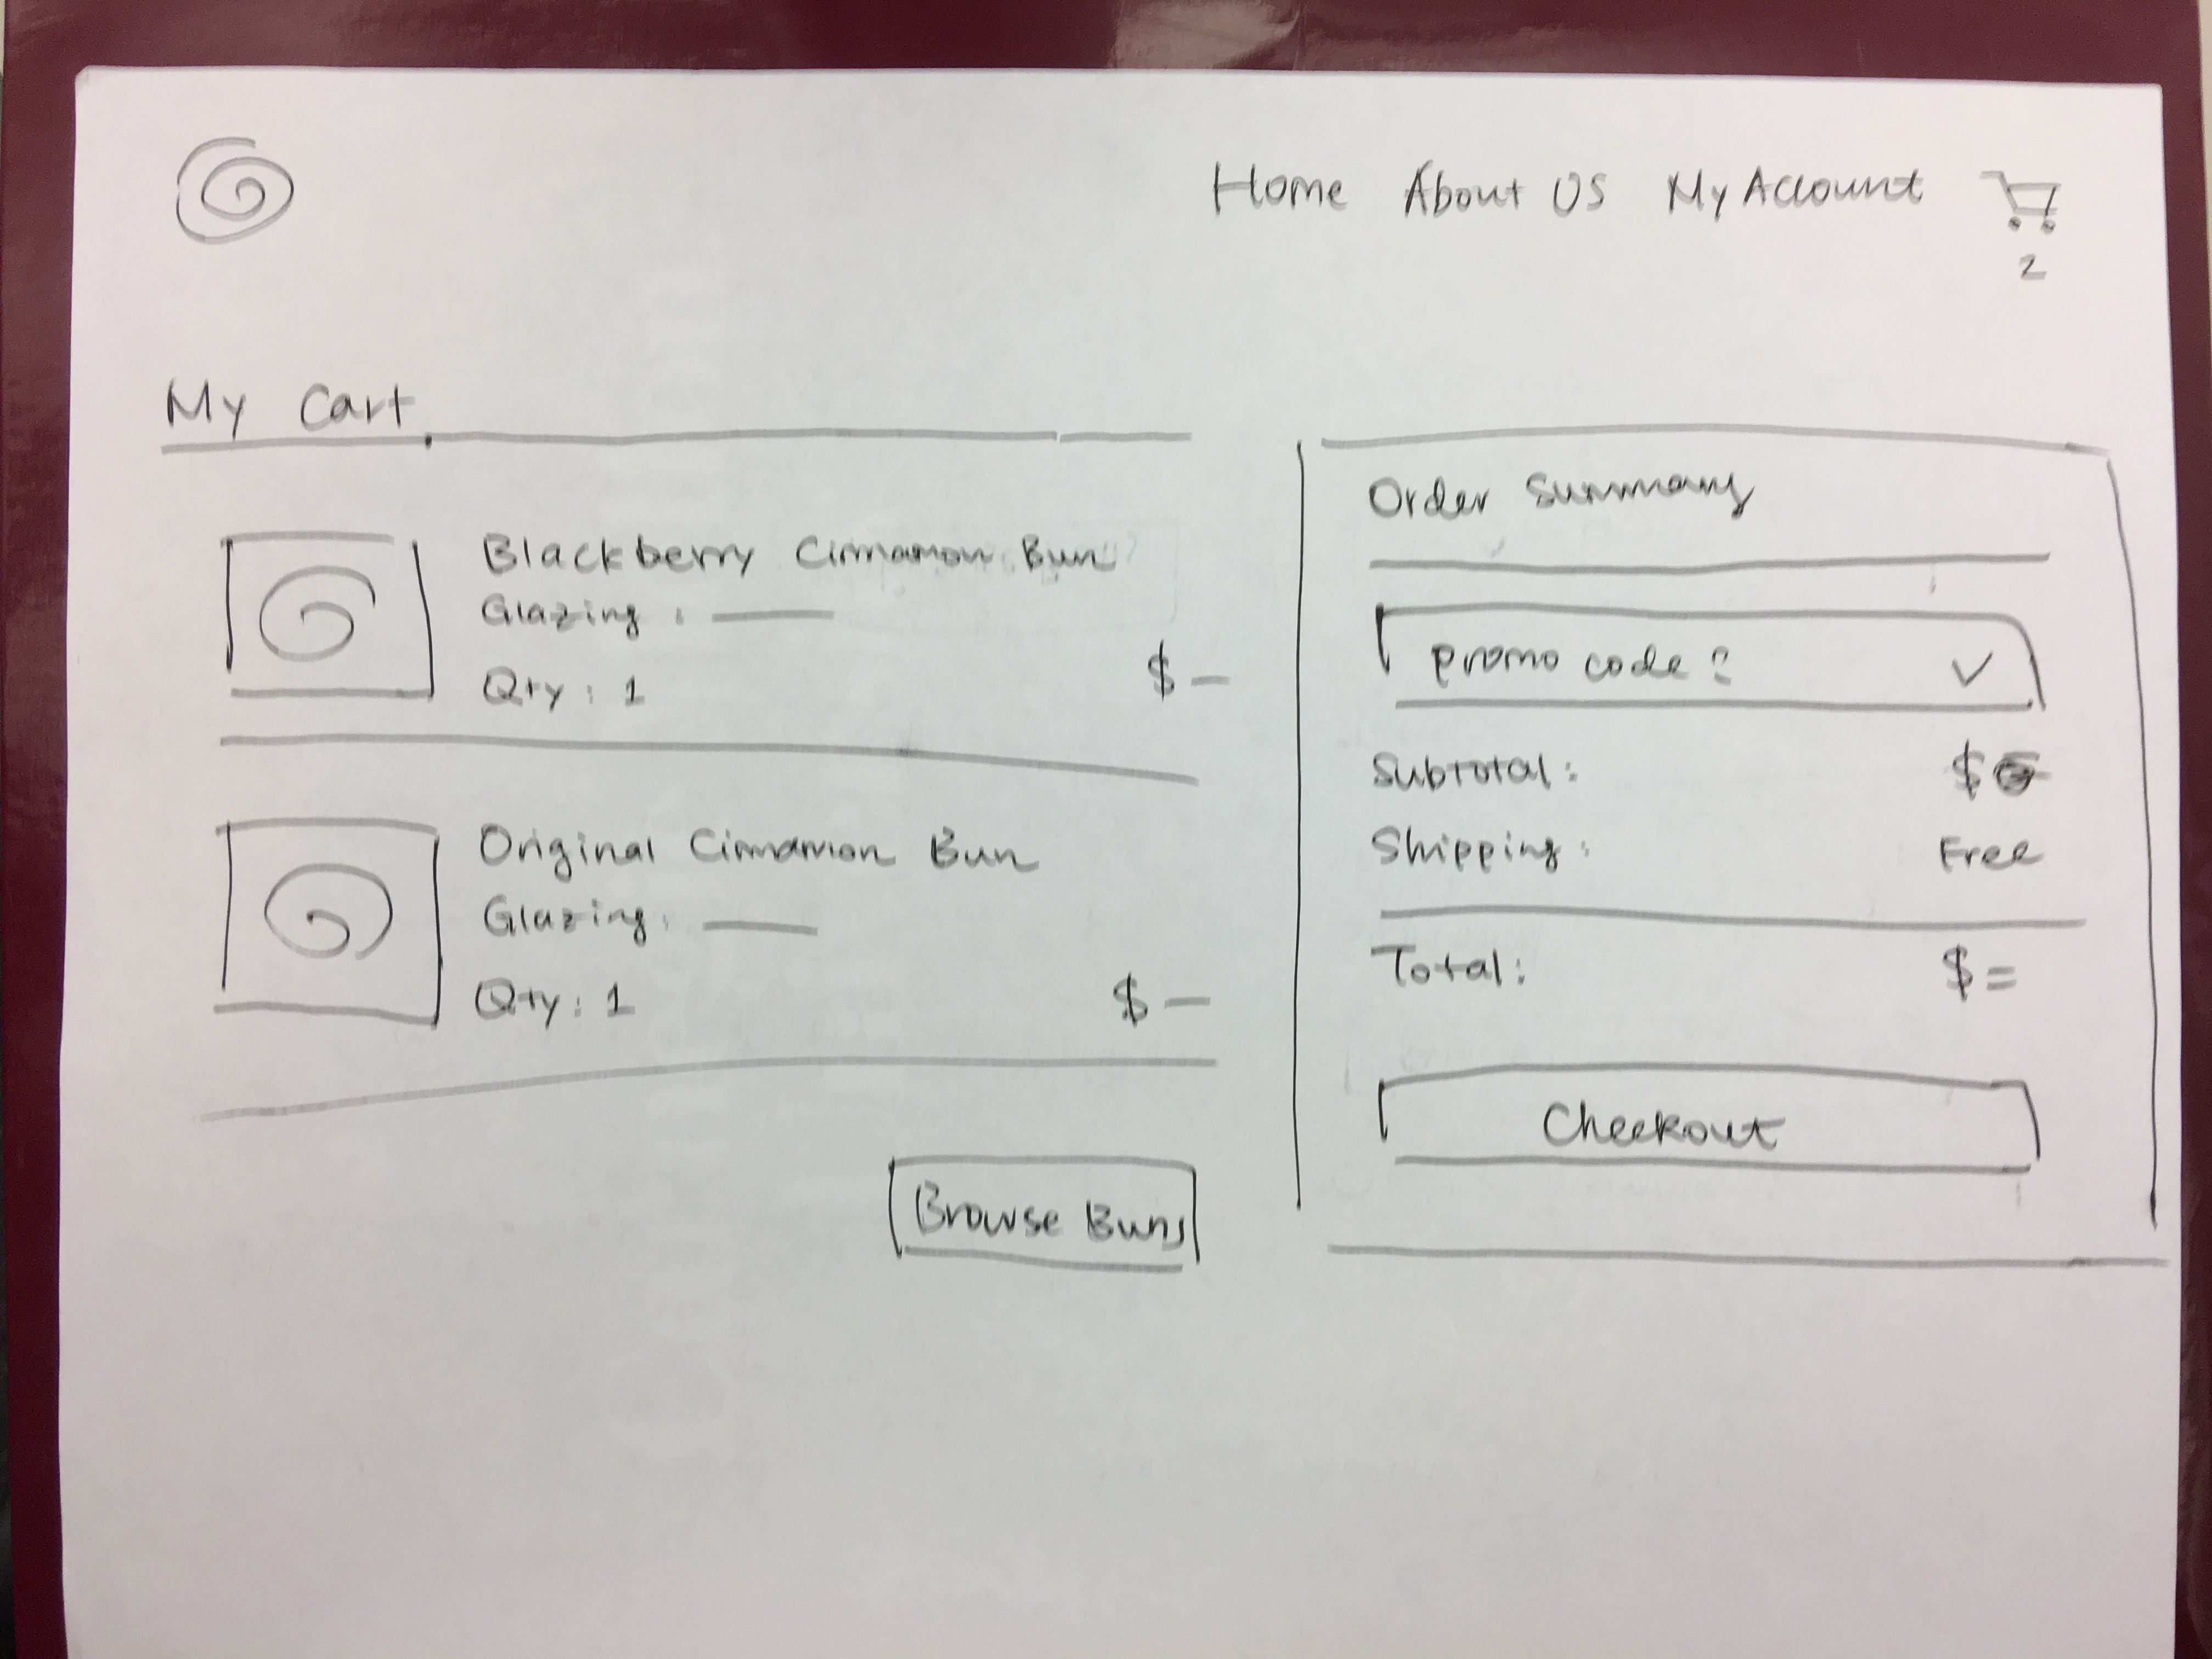 Home About Us My Account
2
My Cart
Blackberry Cinnamon Bun
Glazing:
Qty: 1
$ -
Original Cinnamon Bun
Glazing:
Qty: 1
$ -
Browse Buns
Order Summary
Promo code?
Subtotal: $
Shipping: Free
Total: $
Checkout